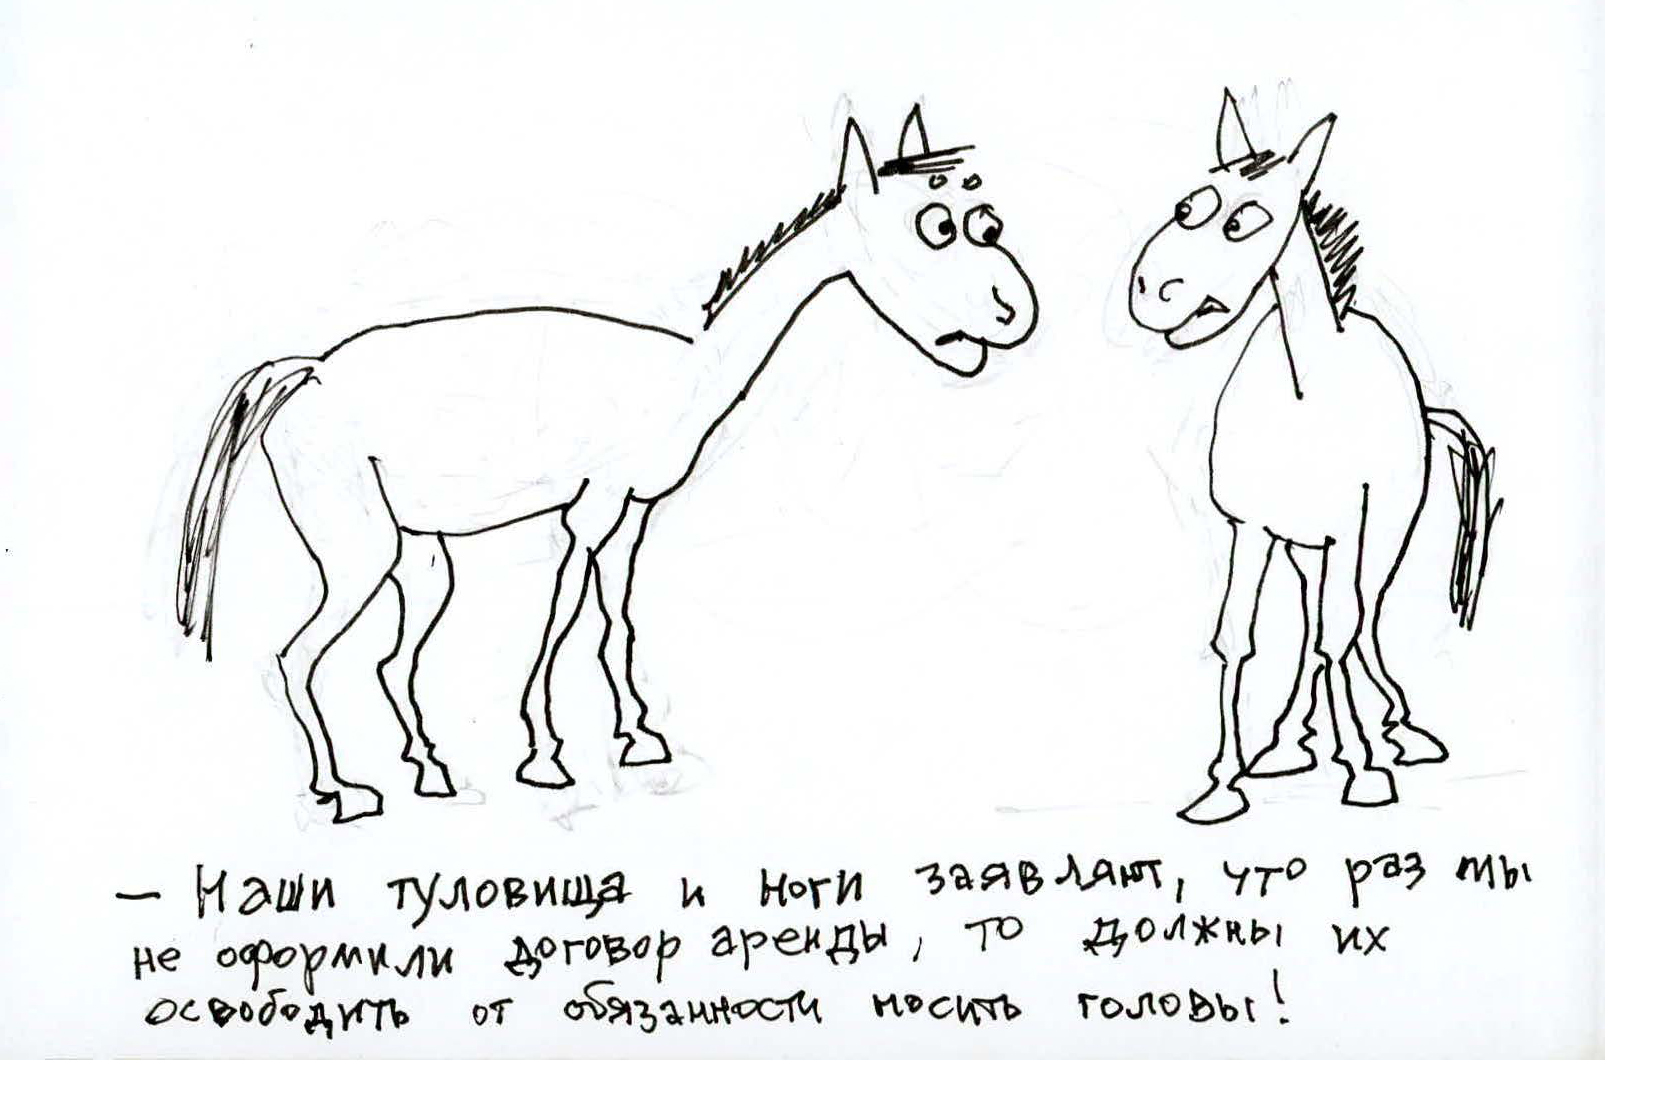 — Наши туловища и ноги заявляют, что раз мы
не оформили договор аренды, то должны их
освободить от обязанности носить головы!